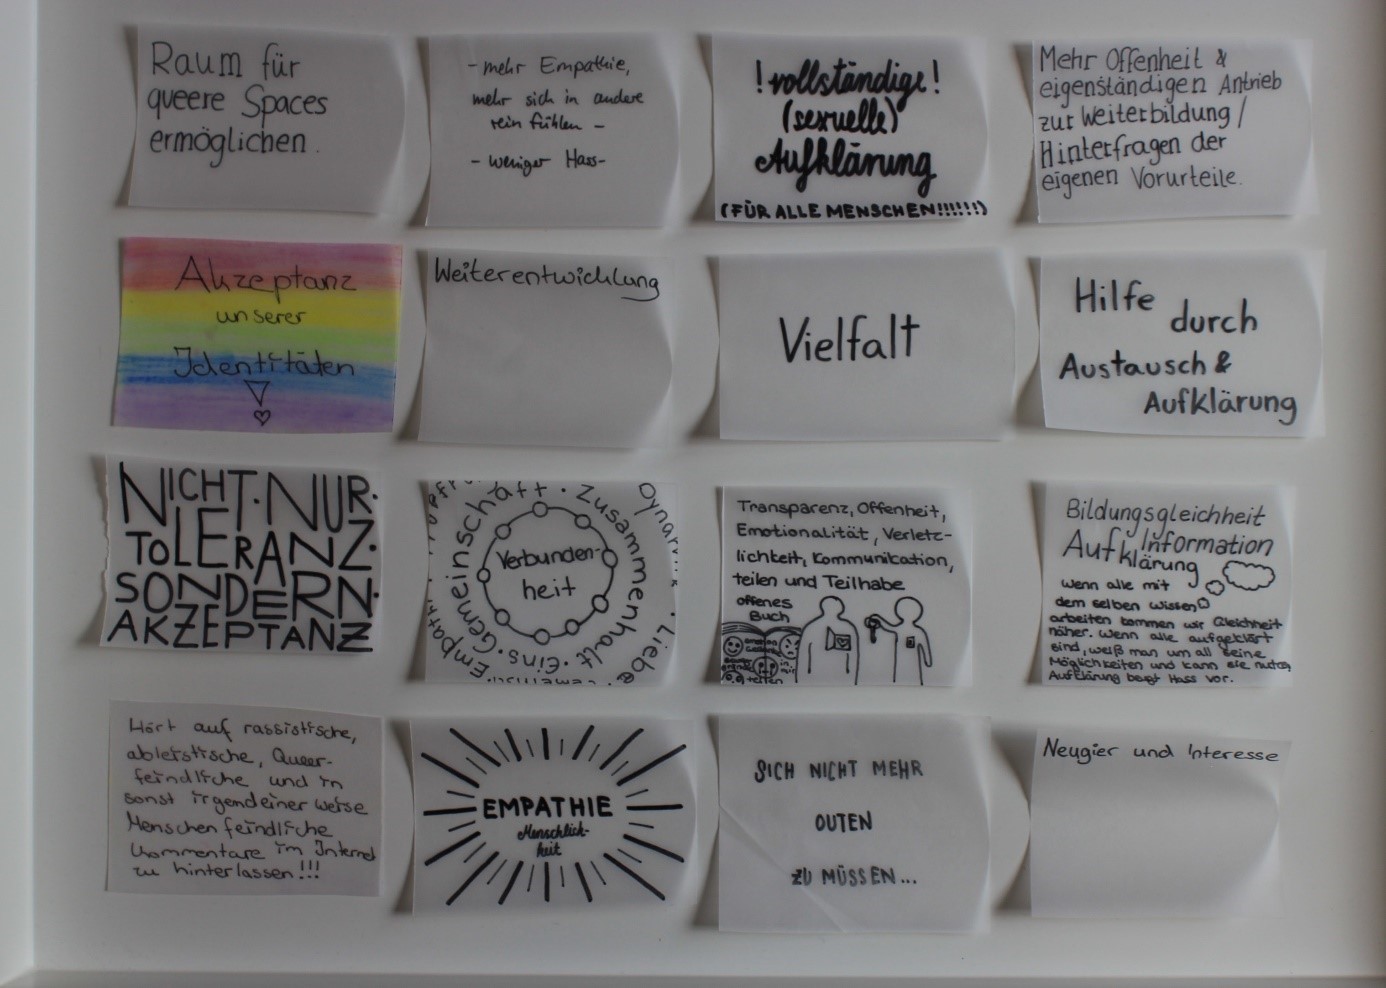 Raum für
queere Spaces
ermöglichen.
- mehr Empathie,
mehr sich in andere
rein fühlen -
- weniger Hass-
! vollständige !
(sexuelle)
Aufklärung
(FÜR ALLE MENSCHEN!!!!!!)
Mehr Offenheit &
eigenständigen Antrieb
zur Weiterbildung /
Hinterfragen der
eigenen Vorurteile.
Akzeptanz
unserer
Identitäten
Weiterentwicklung
Vielfalt
Hilfe
durch
Austausch &
Aufklärung
NICHT·NUR·
TOLERANZ·
SONDERN·
AKZEPTANZ
Verbunden-
heit
Gemeinschaft · Zusammenhalt · Eins ·
Dynamik · Liebe
Empath
Transparenz, Offenheit,
Emotionalität, Verletz-
lichkeit, Kommunikation,
teilen und Teilhabe
offenes
Buch
teilen
Bildungsgleichheit
Information
Aufklärung
Wenn alle mit
dem selben Wissen
arbeiten kommen wir Gleichheit
näher. Wenn alle aufgeklärt
sind, weiß man um all seine
Möglichkeiten und kann sie nutzen
Aufklärung beugt Hass vor.
Hört auf rassistische,
ableistische, Queer-
feindliche und in
sonst irgendeiner weise
Menschenfeindliche
Kommentare im Internet
zu hinterlassen!!!
EMPATHIE
Menschlich-
keit
SICH NICHT MEHR
OUTEN
ZU MÜSSEN...
Neugier und Interesse